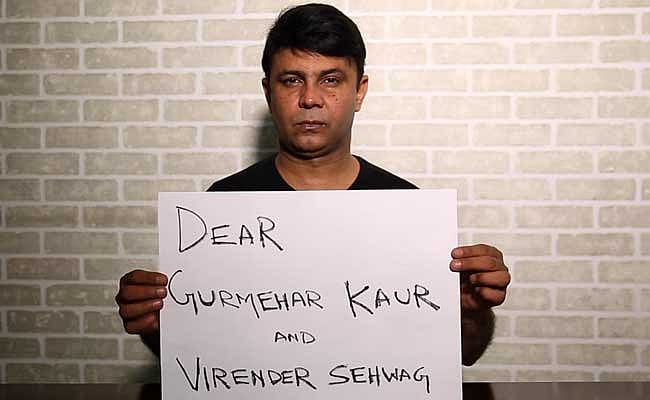 DEAR
GURMEHAR KAUR
AND
VIRENDER SEHWAG